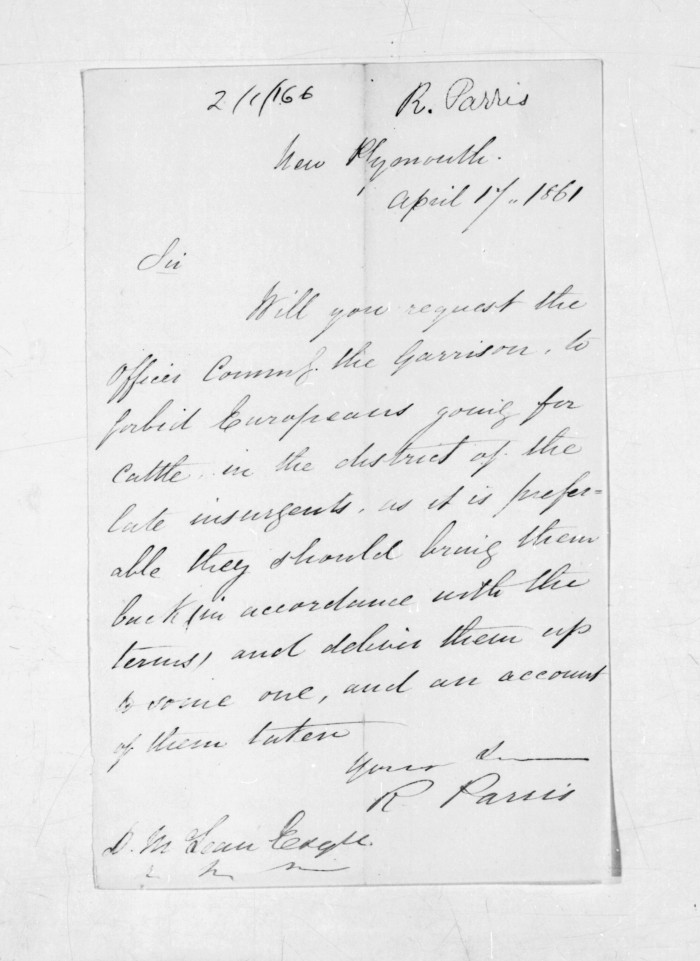 2/1/166 R. Parris
New Plymouth.
April 17,, 1861
Sir
Will you request the
Officer Commg. the Garrison, to
forbid Europeans going for
Cattle, in the district of the
late insurgents, as it is prefer=
able they should bring them
back (in accordance with the
terms) and deliver them up
to some one, and an account
of them taken
Yours
R Parris
D. McLean Esqre.